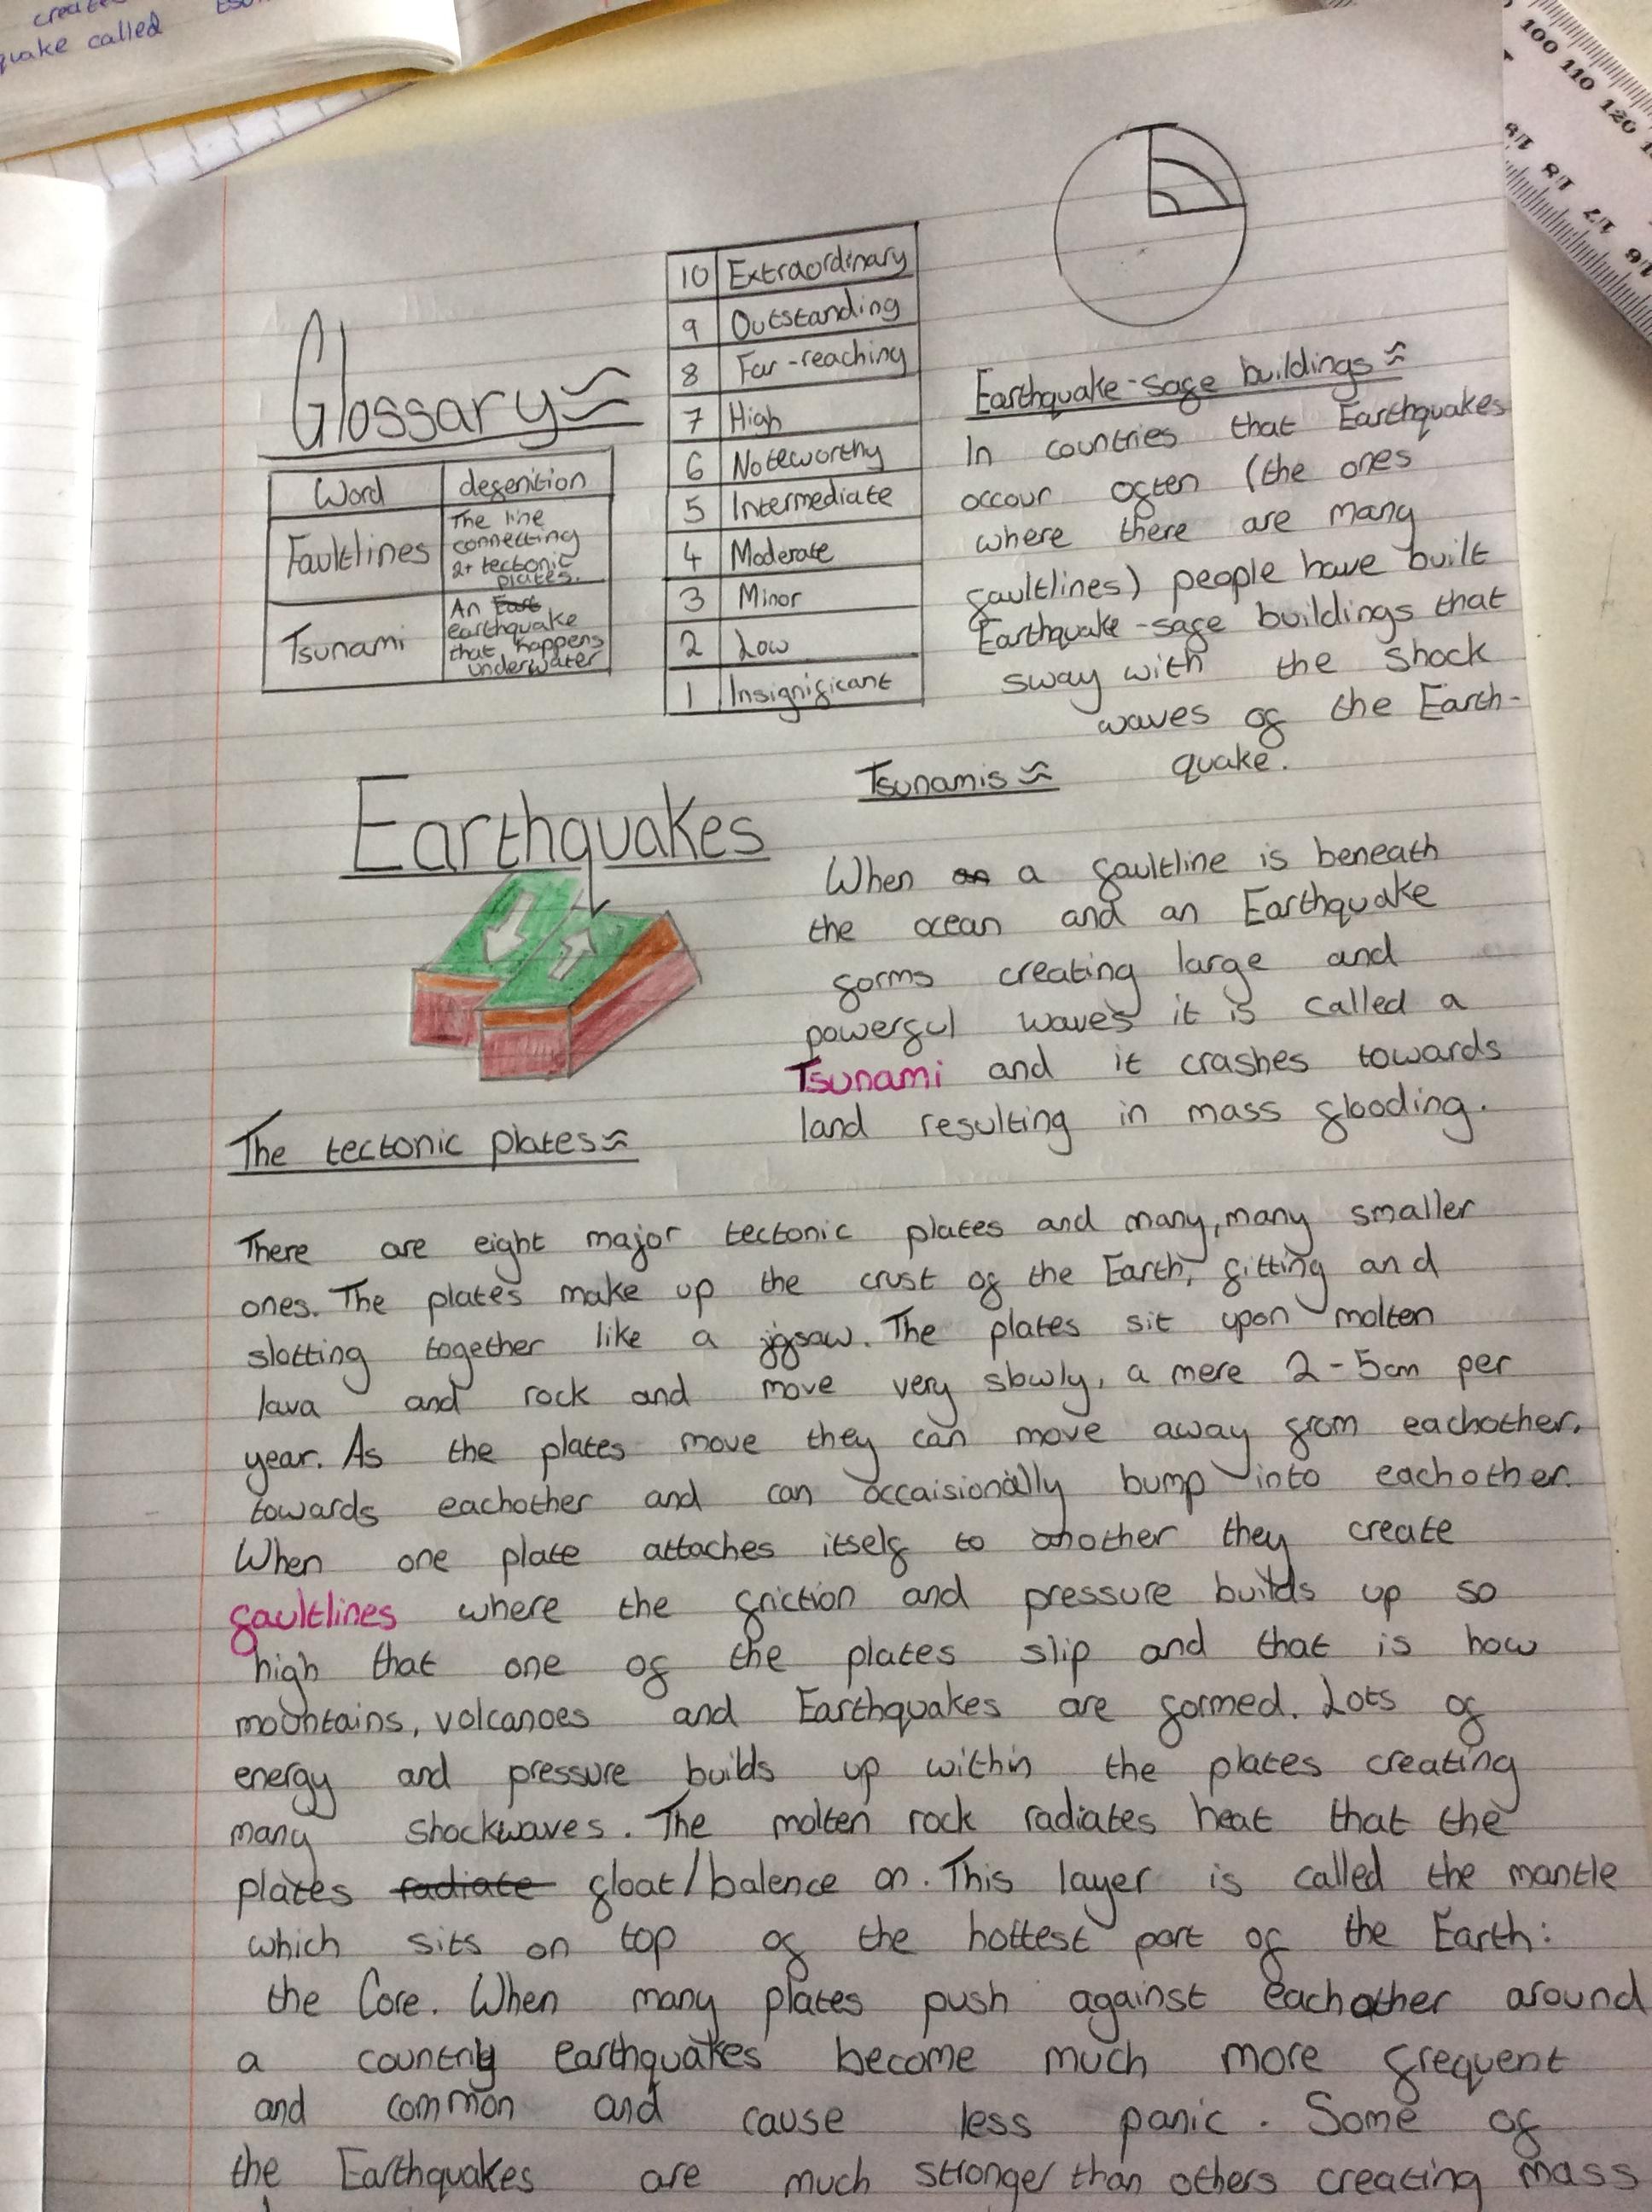 create
quake called
100 110 120
19 18 17 16
Glossary
Word | defenition
Faultlines | The line
connecting
2+ tectonic
plates.
Tsunami | An Eart
earthquake
that happens
underwater
10 | Extraordinary
9 | Outstanding
8 | Far-reaching
7 | High
6 | Noteworthy
5 | Intermediate
4 | Moderate
3 | Minor
2 | Low
1 | Insignificant
Earthquake-safe buildings
In countries that Earthquakes
occour often (the ones
where there are many
faultlines) people have built
Earthquake-safe buildings that
sway with the shock
waves of the Earth-
quake.
Earthquakes
Tsunamis
When an a faultline is beneath
the ocean and an Earthquake
forms creating large and
powerful waves it is called a
Tsunami and it crashes towards
land resulting in mass flooding.
The tectonic plates
There are eight major tectonic plates and many, many smaller
ones. The plates make up the crust of the Earth, fitting and
slotting together like a jigsaw. The plates sit upon molten
lava and rock and move very slowly, a mere 2-5cm per
year. As the plates move they can move away from eachother,
towards eachother and can occaisionally bump into eachother.
When one plate attaches itself to another they create
faultlines where the friction and pressure builds up so
high that one of the plates slip and that is how
mountains, volcanoes and Earthquakes are formed. Lots of
energy and pressure builds up within the plates creating
many shockwaves. The molten rock radiates heat that the
plates radiate float/balence on. This layer is called the mantle
which sits on top of the hottest part of the Earth:
the Core. When many plates push against eachother around
a country earthquakes become much more frequent
and common and cause less panic. Some of
the Earthquakes are much stronger than others creating mass